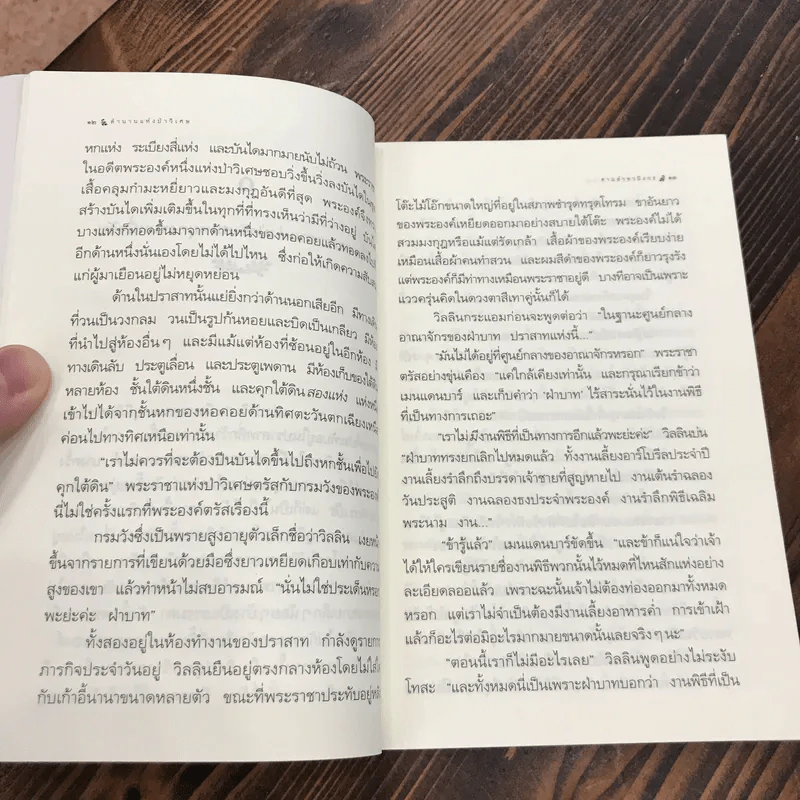 ๑๒ ตำนานแห่งป่าวิเศษ
หกแห่ง ระเบียงสี่แห่ง และบันไดมากมายนับไม่ถ้วน
ในอดีตพระองค์หนึ่งแห่งป่าวิเศษชอบวิ่งขึ้นวิ่งลงบันได
เสื้อคลุมกำมะหยี่ยาวและมงกุฎอันดีที่สุด
สร้างบันไดเพิ่มเติมขึ้นในทุกที่ที่ทรงเห็นว่ามีที่ว่างอยู่
บางแห่งก็ทอดขึ้นมาจากด้านหนึ่งของหอคอยแล้วทอดลง
อีกด้านหนึ่งนั่นเองโดยไม่ได้ไปไหน ซึ่งก่อให้เกิดความ
แก่ผู้มาเยือนอยู่ไม่หยุดหย่อน
ด้านในปราสาทนั้นแย่ยิ่งกว่าด้านนอกเสียอีก
ที่วนเป็นวงกลม วนเป็นรูปก้นหอยและบิดเป็นเกลียว
ที่นำไปสู่ห้องอื่นๆ และมีแม้แต่ห้องที่ซ้อนอยู่ในอีกห้อง
ทางเดินลับ ประตูเลื่อน และประตูเพดาน มีห้องเก็บของใต้
หลายห้อง ชั้นใต้ดินหนึ่งชั้น และคุกใต้ดินสองแห่ง
เข้าไปได้จากชั้นหกของหอคอยด้านทิศตะวันตกเฉียงเหนือ
ค่อนไปทางทิศเหนือเท่านั้น
“เราไม่ควรที่จะต้องปีนบันไดขึ้นไปถึงหกชั้นเพื่อไป
คุกใต้ดิน” พระราชาแห่งป่าวิเศษตรัสกับกรมวังของพระองค์
นี่ไม่ใช่ครั้งแรกที่พระองค์ตรัสเรื่องนี้
กรมวังซึ่งเป็นพรายสูงอายุตัวเล็กชื่อว่าวิลลิน
ขึ้นจากรายการที่เขียนด้วยมือซึ่งยาวเหยียดเกือบเท่ากับความ
สูงของเขา แล้วทำหน้าไม่สบอารมณ์ “นั่นไม่ใช่ประเด็น
พะย่ะค่ะ ฝ่าบาท”
ทั้งสองอยู่ในห้องทำงานของปราสาท กำลังดูรายการ
ภารกิจประจำวันอยู่ วิลลินยืนอยู่ตรงกลางห้องโดยไม่
กับเก้าอี้นานาขนาดหลายตัว ขณะที่พระราชาประทับอยู่
๑๓
โต๊ะไม้โอ๊กขนาดใหญ่ที่อยู่ในสภาพชำรุดทรุดโทรม ขาอันยาว
ของพระองค์เหยียดออกมาอย่างสบายใต้โต๊ะ พระองค์ไม่ได้
สวมมงกุฎหรือแม้แต่รัดเกล้า เสื้อผ้าของพระองค์เรียบง่าย
เหมือนเสื้อผ้าคนทำสวน และผมสีดำของพระองค์ก็ยาวรุงรัง
แต่พระองค์ก็มีท่าทางเหมือนพระราชาอยู่ดี บางทีอาจเป็นเพราะ
แววครุ่นคิดในดวงตาสีเทาคู่นั้นก็ได้
วิลลินกระแอมก่อนจะพูดต่อว่า “ในฐานะศูนย์กลาง
อาณาจักรของฝ่าบาท ปราสาทแห่งนี้...”
“มันไม่ได้อยู่ที่ศูนย์กลางของอาณาจักรหรอก” พระราชา
ตรัสอย่างขุ่นเคือง “แค่ใกล้เคียงเท่านั้น และกรุณาเรียกข้าว่า
เมนแดนบาร์ และเก็บคำว่า ‘ฝ่าบาท’ ไร้สาระนั่นไว้ในงานพิธี
ที่เป็นทางการเถอะ”
“เราไม่มีงานพิธีที่เป็นทางการอีกแล้วพะย่ะค่ะ” วิลลินบ่น
“ฝ่าบาททรงยกเลิกไปหมดแล้ว ทั้งงานเลี้ยงอาร์โบรีลประจำปี
งานเลี้ยงรำลึกถึงบรรดาเจ้าชายที่สูญหายไป งานเต้นรำฉลอง
วันประสูติ งานฉลองธงประจำพระองค์ งานรำลึกพิธีเฉลิม
พระนาม งาน...”
“ข้ารู้แล้ว” เมนแดนบาร์ขัดขึ้น “และข้าก็แน่ใจว่าเจ้า
ได้ให้ใครเขียนรายชื่องานพิธีพวกนั้นไว้หมดที่ไหนสักแห่งอย่าง
ละเอียดลออแล้ว เพราะฉะนั้นเจ้าไม่ต้องท่องออกมาทั้งหมด
หรอก แต่เราไม่จำเป็นต้องมีงานเลี้ยงอาหารค่ำ การเข้าเฝ้า
แล้วก็อะไรต่อมิอะไรมากมายขนาดนั้นเลยจริงๆ นะ”
“ตอนนี้เราก็ไม่มีอะไรเลย” วิลลินพูดอย่างไม่ระงับ
โทสะ “และทั้งหมดนี่เป็นเพราะฝ่าบาทบอกว่า งานพิธีที่เป็น